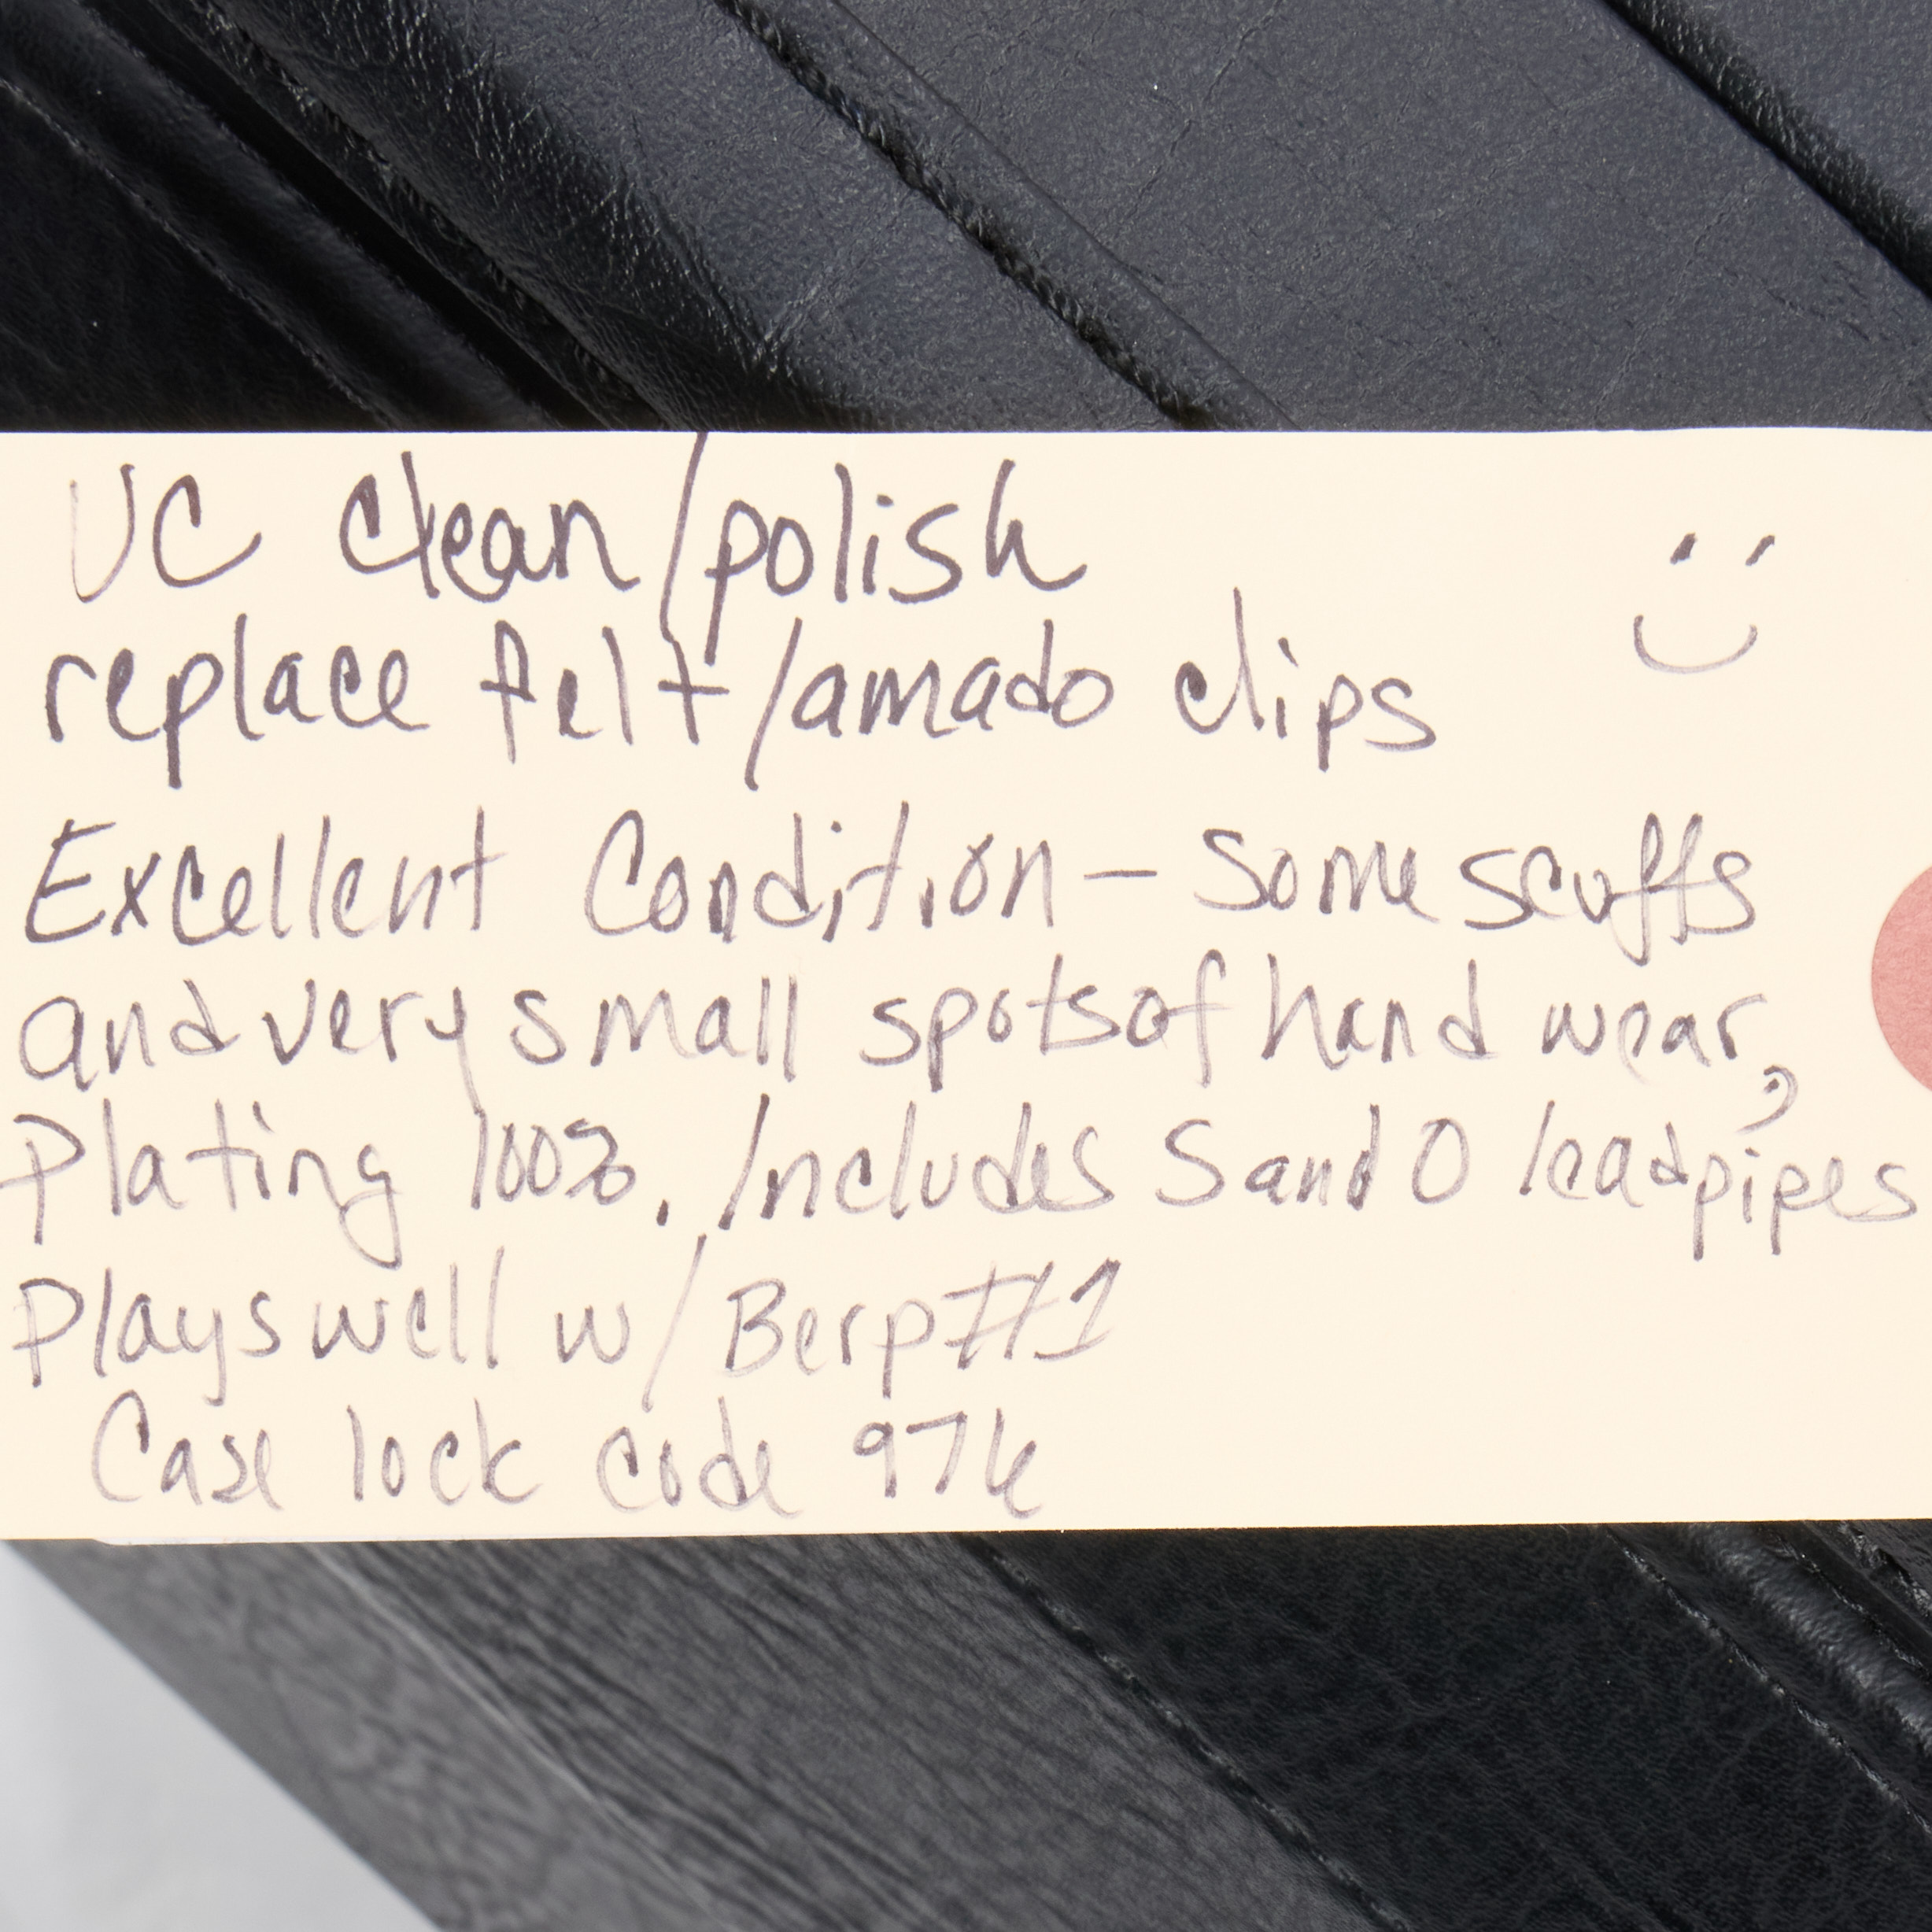 UC clean/polish
replace felt/amado clips
Excellent Condition - Some scuffs
and very small spots of hand wear,
Plating 100%. Includes S and O leadpipes
Plays well w/ Berp #1
Case lock code 976